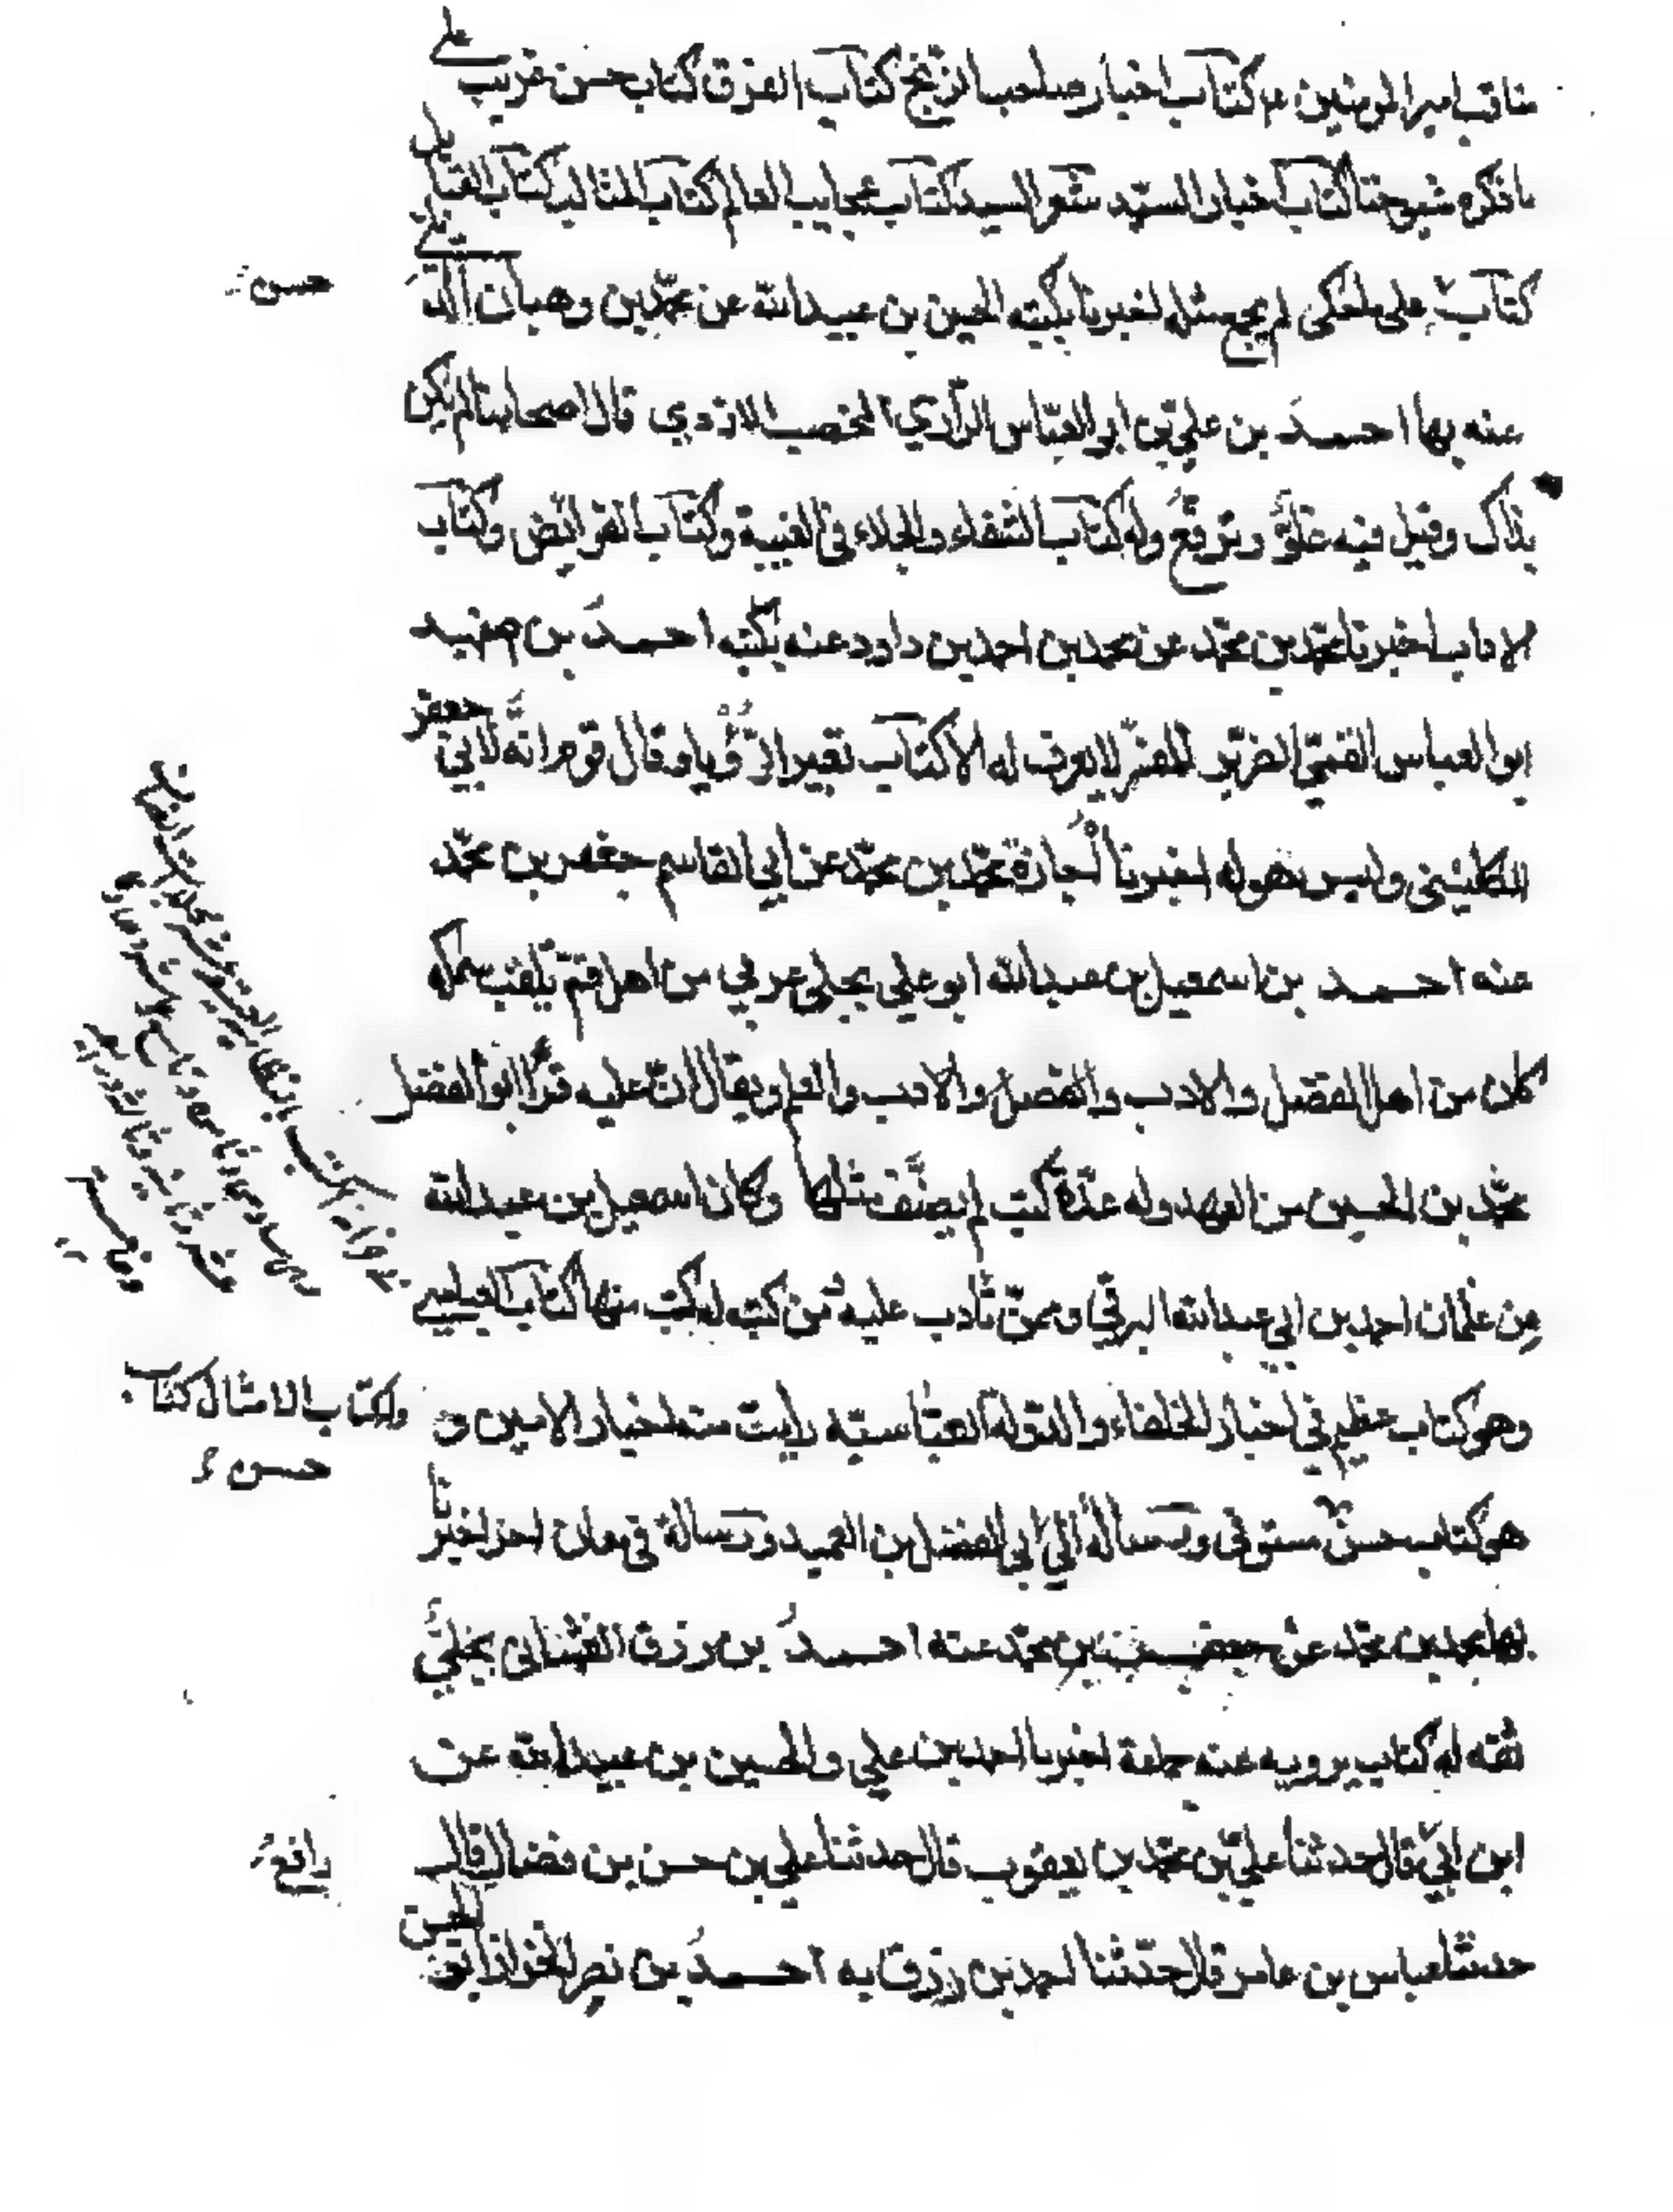 مناقب امير المومنين ع م كتاب اخبار صاحب الزنج كتاب الفرق كتاب حسن غريب على
ما ذكره شيوخنا كتاب اخبار السيد شعر السيد كتاب عجايب العالم كتاب المثالب كتاب القبايل
كتاب على ما حكى لم يجمع مثله اخبرنا بكتبه الحسين بن عبيدالله عن محمد بن وهبان
حسن
عنه بها احمد بن علي بن ابو العباس الرازي الخصيب الازدي قال اصحابنا لم يكن
بذاك وقيل فيه غلو وترفع وله كتاب الشفاء والجلاء في الغيبة وكتاب الفرائض وكتاب
الاداب اخبرنا محمد بن محمد عن محمد بن احمد بن داود عنه بكتبه احمد بن اصفهبد
ابو العباس القمي الضرير المفسر لا يعرف له الا كتاب تعبير الرؤيا وقال قوم انه لابي جعفر
الكليني وليس هو له اخبرنا اجازة محمد بن محمد عن ابي القاسم جعفر بن محمد
عنه احمد بن اسمعيل بن عبدالله ابو علي بجلي عربي من اهل قم يلقب سمكه
كان من اهل الفضل والادب والفضل والادب والعلم ويقال ان عليه قرأ ابو الفضل
محمد بن الحسين بن العميد وله عدة كتب لم يصنف مثلها وكان اسمعيل بن عبدالله
من غلمان احمد بن ابي عبدالله البرقي وممن تأدب عليه فمن كتبه له كتب منها كتاب العباسي
وهو كتاب عظيم في اخبار الخلفاء والدولة العباسية رايت منه اخبار الامين و
وكتاب الامثال كتاب
حسن
هو كتاب حسن مستوفى ورسالة الى ابي الفضل بن العميد ورسالة في معان اخر اخبرنا
بها محمد بن محمد عن جعفر بن محمد عنه احمد بن رزق الغشاني بجلي
ثقه له كتاب يرويه عنه جماعة اخبرنا احمد بن علي والحسين بن عبيدالله عن
ابن ابي قال حدثنا علي بن محمد بن يعقوب قال حدثنا علي بن حسن بن فضال قال
رافع
حدثنا عباس بن عامر قال حدثنا احمد بن رزق به احمد بن نصر الخزاز ابو الحسن